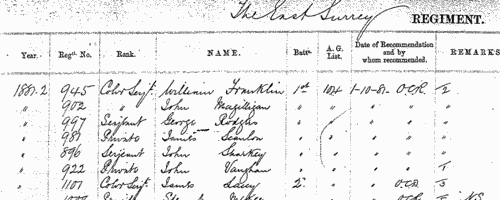 The East Surrey REGIMENT.
Year. Regtl. No. Rank. NAME. Battn. A. G. List. Date of Recommendation and by whom recommended. REMARKS
1881-2 945 Color Serjt. William Franklin 1st 104 1-10-81- O.C.R. 2
" 902 " John Magilligan " " " " "
" 997 Serjeant George Rodgers " " " " "
" 987 Private James Scanlon " " " " "
" 896 Serjeant John Sharkey " " " " "
" 922 Private John Vaughan " " " "
" 1101 Color Serjt. James Lacey 2 " " O.C.R. 3